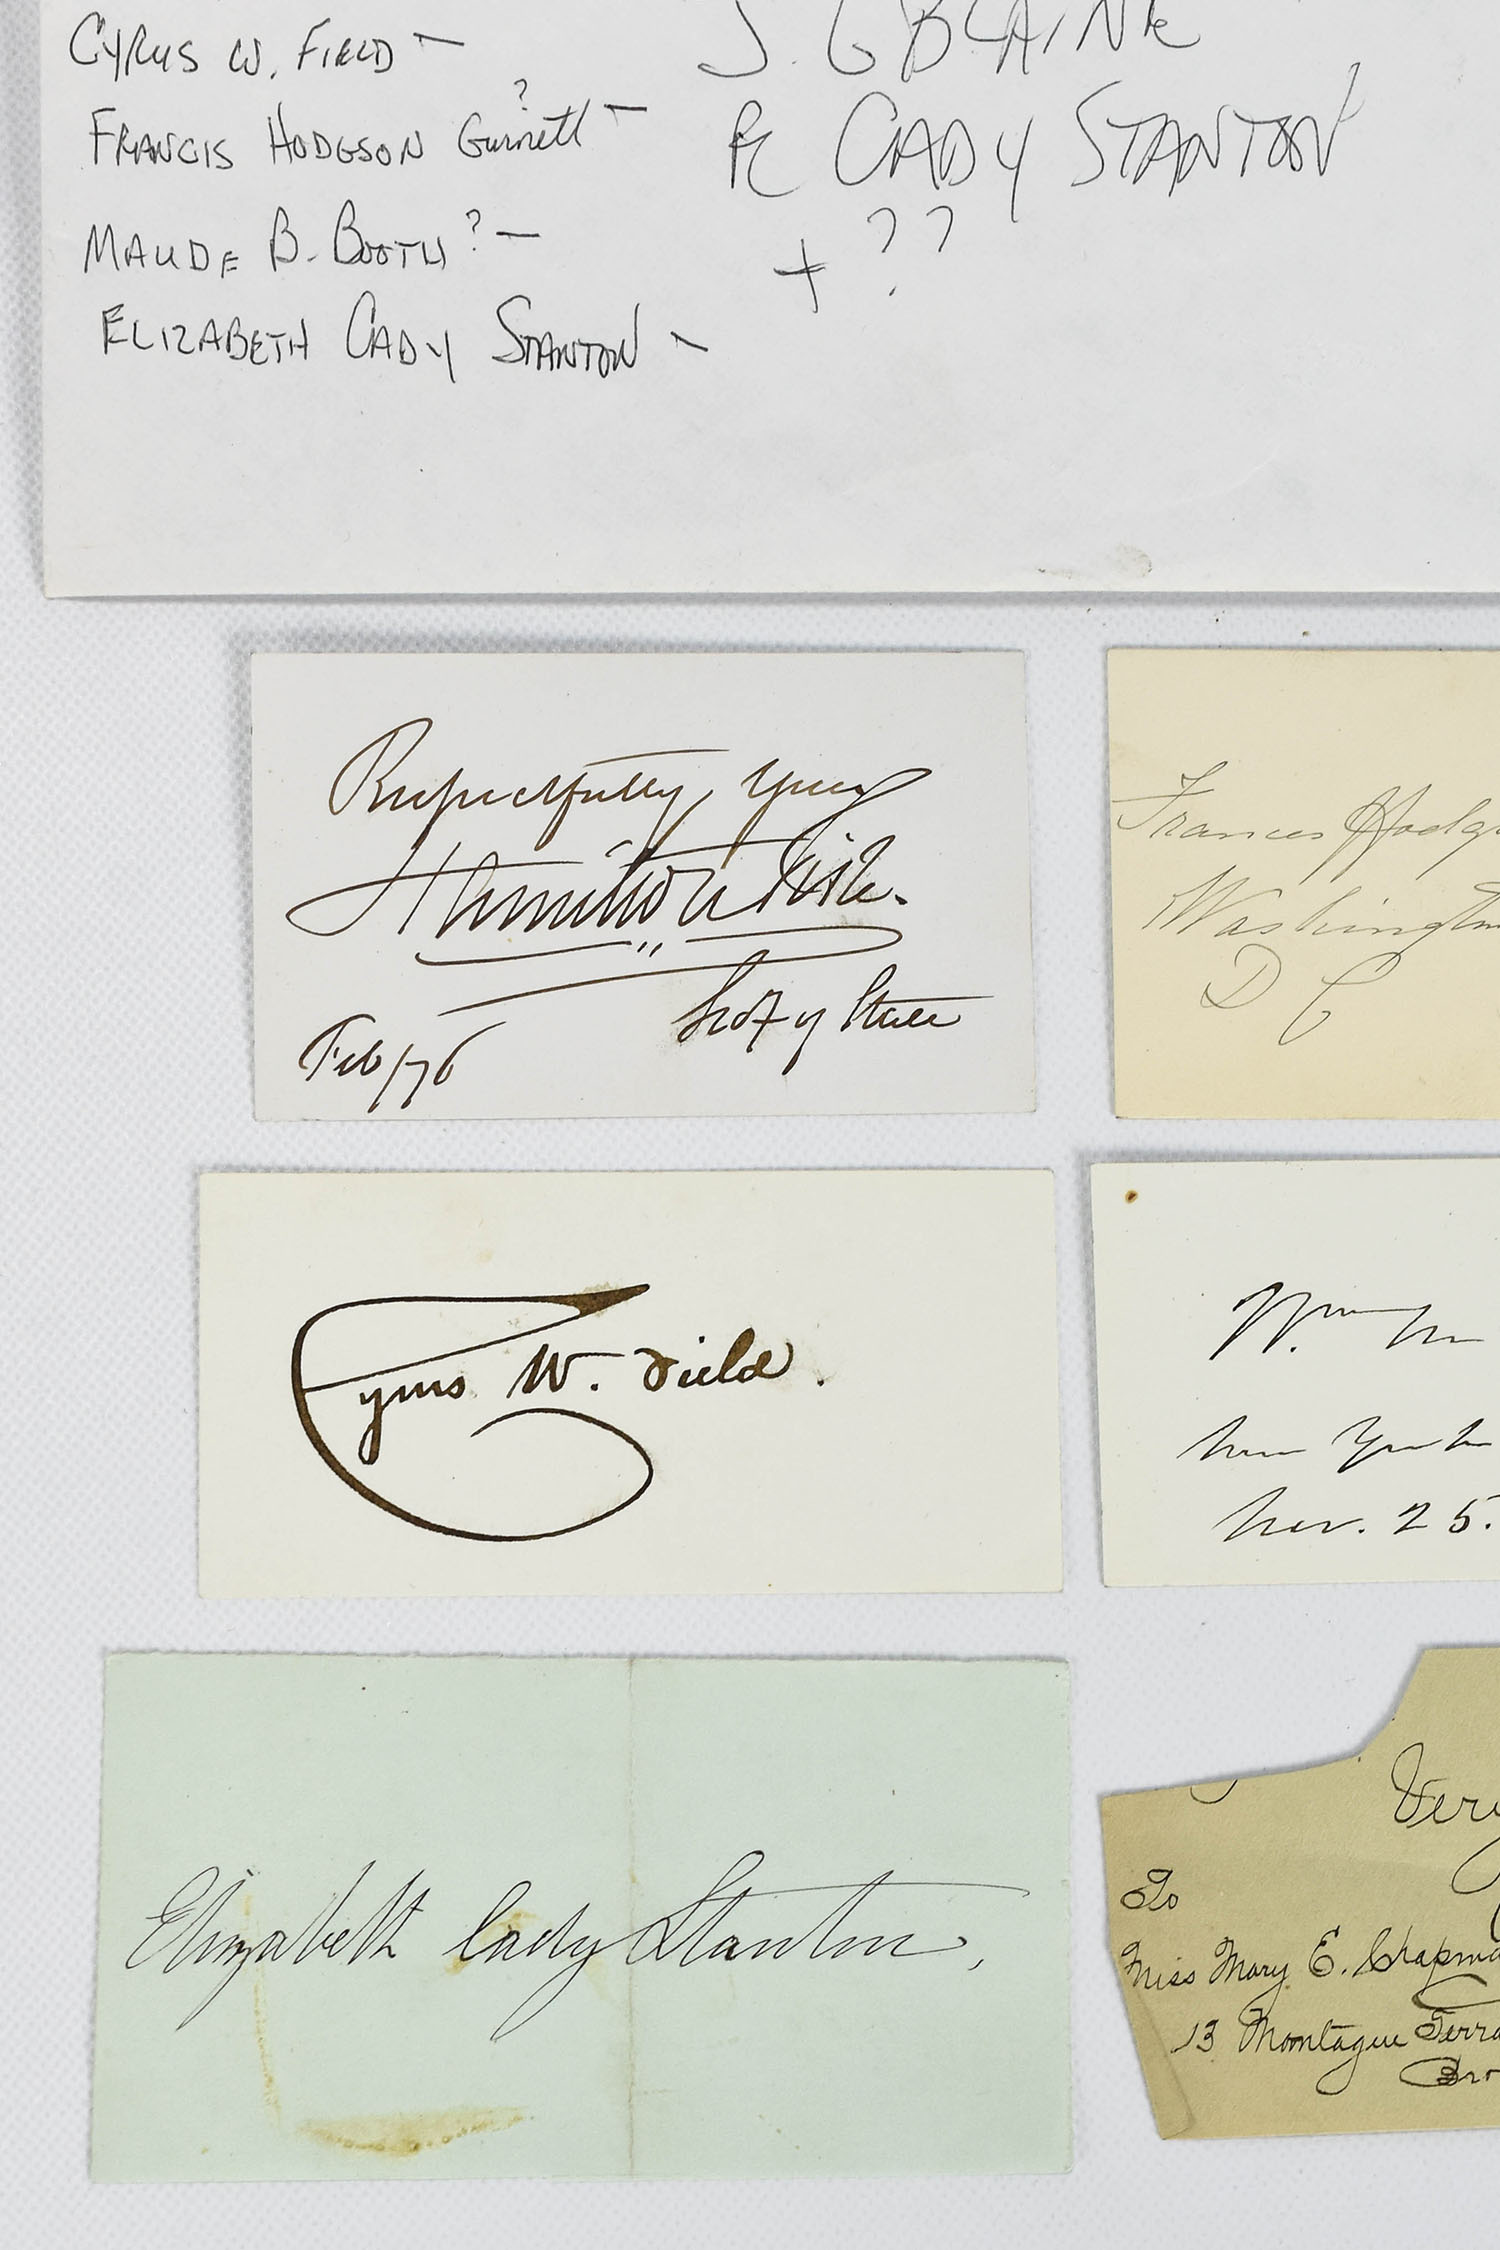 CYRUS W. FIELD —
FRANCIS HODGSON Gurnett ? —
MAUDE B. BOOTH ? —
ELIZABETH CADY STANTON —
J. G BLAINE
CADY STANTON
+ ??
Respectfully yours
Hamilton Fish.
Secty of State
Feb/76
Frances Hodg
Washington
D C
Cyrus W. Field.
New York
Nov. 25.
Elizabeth Cady Stanton,
Very
To
Miss Mary E. Chapma
13 Montague Terra
Bro